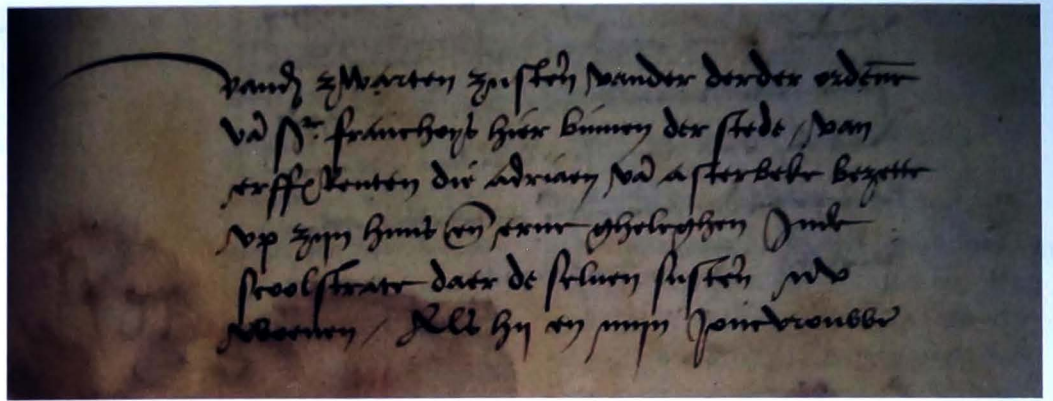 vand zwarten zusten vander derder ordene
va St franchoys hier binnen der stede / van
erffrenten die adriaen va asterbeke bezette
up zijn huus en erve gheleghen Inde
scoolstrate daer de selven susten nu
woenen / Als hij en mijn Joncvrouwe